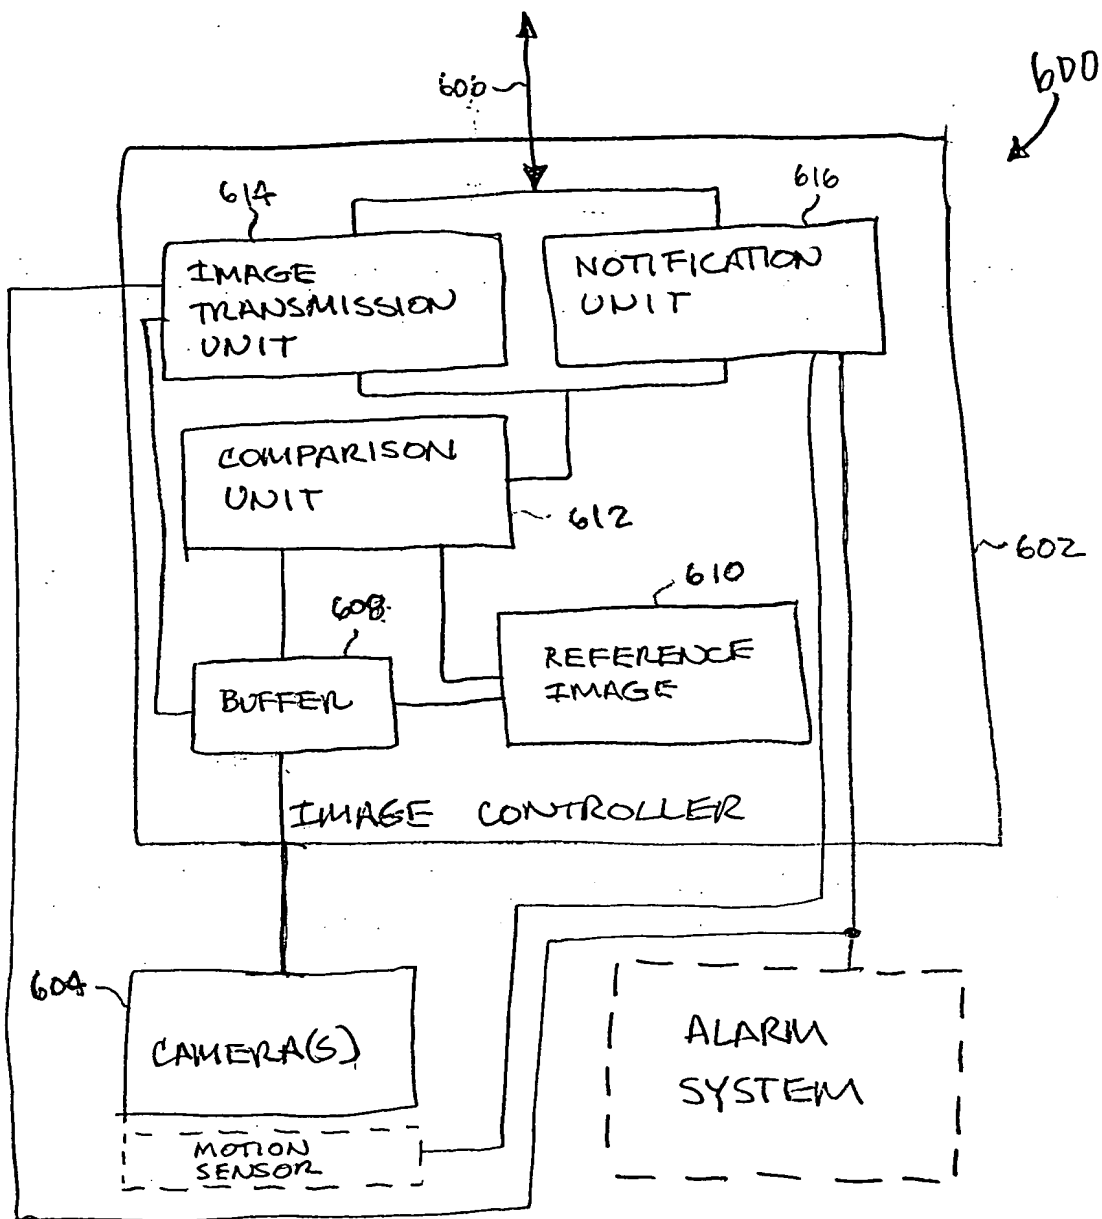 600
606
614
616
IMAGE
TRANSMISSION
UNIT
NOTIFICATION
UNIT
COMPARISON
UNIT
612
602
610
608
REFERENCE
IMAGE
BUFFER
IMAGE CONTROLLER
604
CAMERA(S)
ALARM
SYSTEM
MOTION
SENSOR